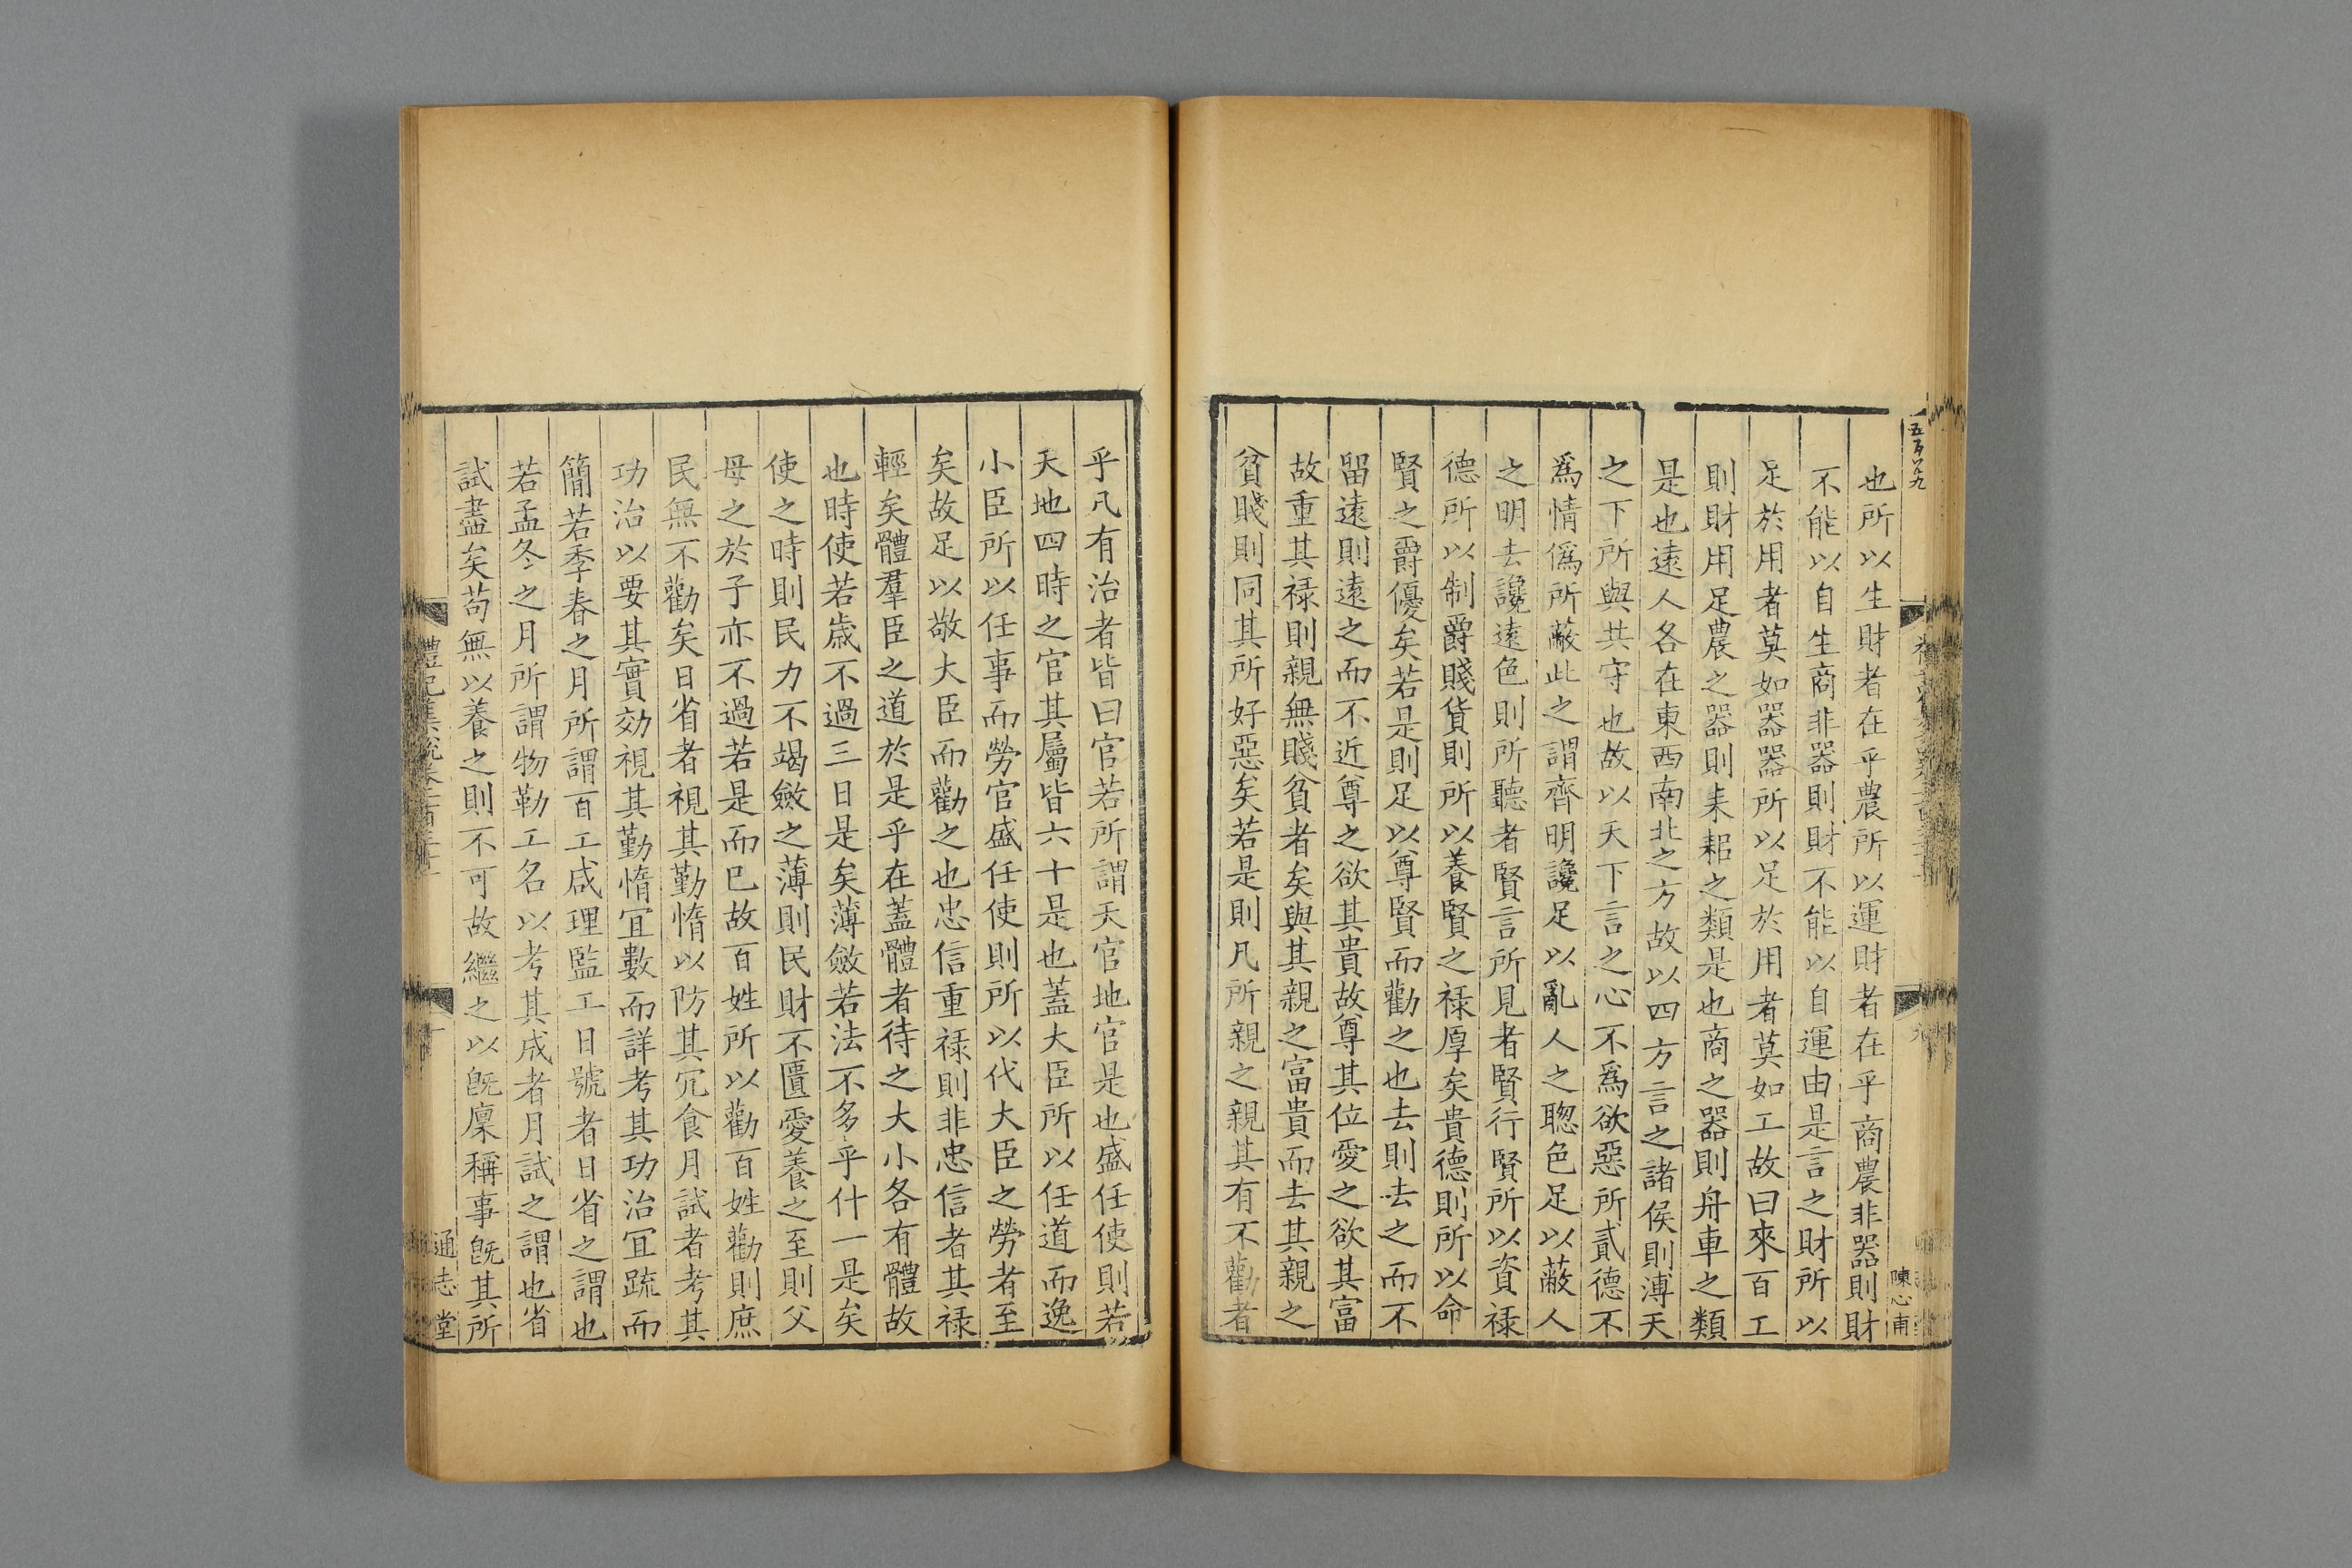 也所以生財者在乎農所以運財者在乎商農非器則財
不能以自生商非器則財不能以自運由是言之財所以
足於用者莫如器器所以足於用者莫如工故曰來百工
則財用足農之器則耒耜之類是也商之器則舟車之類
是也遠人各在東西南北之方故以四方言之諸侯則溥天
之下所與共守也故以天下言之心不爲欲惡所貳德不
爲情僞所蔽此之謂齊明讒足以亂人之聦色足以蔽人
之明去讒遠色則所聽者賢言所見者賢行賢所以資禄
德所以制爵賤貨則所以養賢之禄厚矣貴德則所以命
賢之爵優矣若是則足以尊賢而勸之也去則去之而不
留遠則遠之而不近尊之欲其貴故尊其位愛之欲其富
故重其禄則親無賤貧者矣與其親之富貴而去其親之
貧賤則同其所好惡矣若是則凡所親之親其有不勸者
陳心甫
乎凡有治者皆曰官若所謂天官地官是也盛任使則若
天地四時之官其屬皆六十是也蓋大臣所以任道而逸
小臣所以任事而勞官盛任使則所以代大臣之勞者至
矣故足以敬大臣而勸之也忠信重禄則非忠信者其禄
輕矣體羣臣之道於是乎在蓋體者待之大小各有體故
也時使若歲不過三日是矣薄斂若法不多乎什一是矣
使之時則民力不竭斂之薄則民財不匱愛養之至則父
母之於子亦不過若是而已故百姓所以勸百姓勸則庶
民無不勸矣日省者視其勤惰以防其冗食月試者考其
功治以要其實効視其勤惰宜數而詳考其功治宜䟽而
簡若季春之月所謂百工咸理監工日號者日省之謂也
若孟冬之月所謂物勒工名以考其成者月試之謂也省
試盡矣苟無以養之則不可故繼之以旣廩稱事旣其所
通志堂